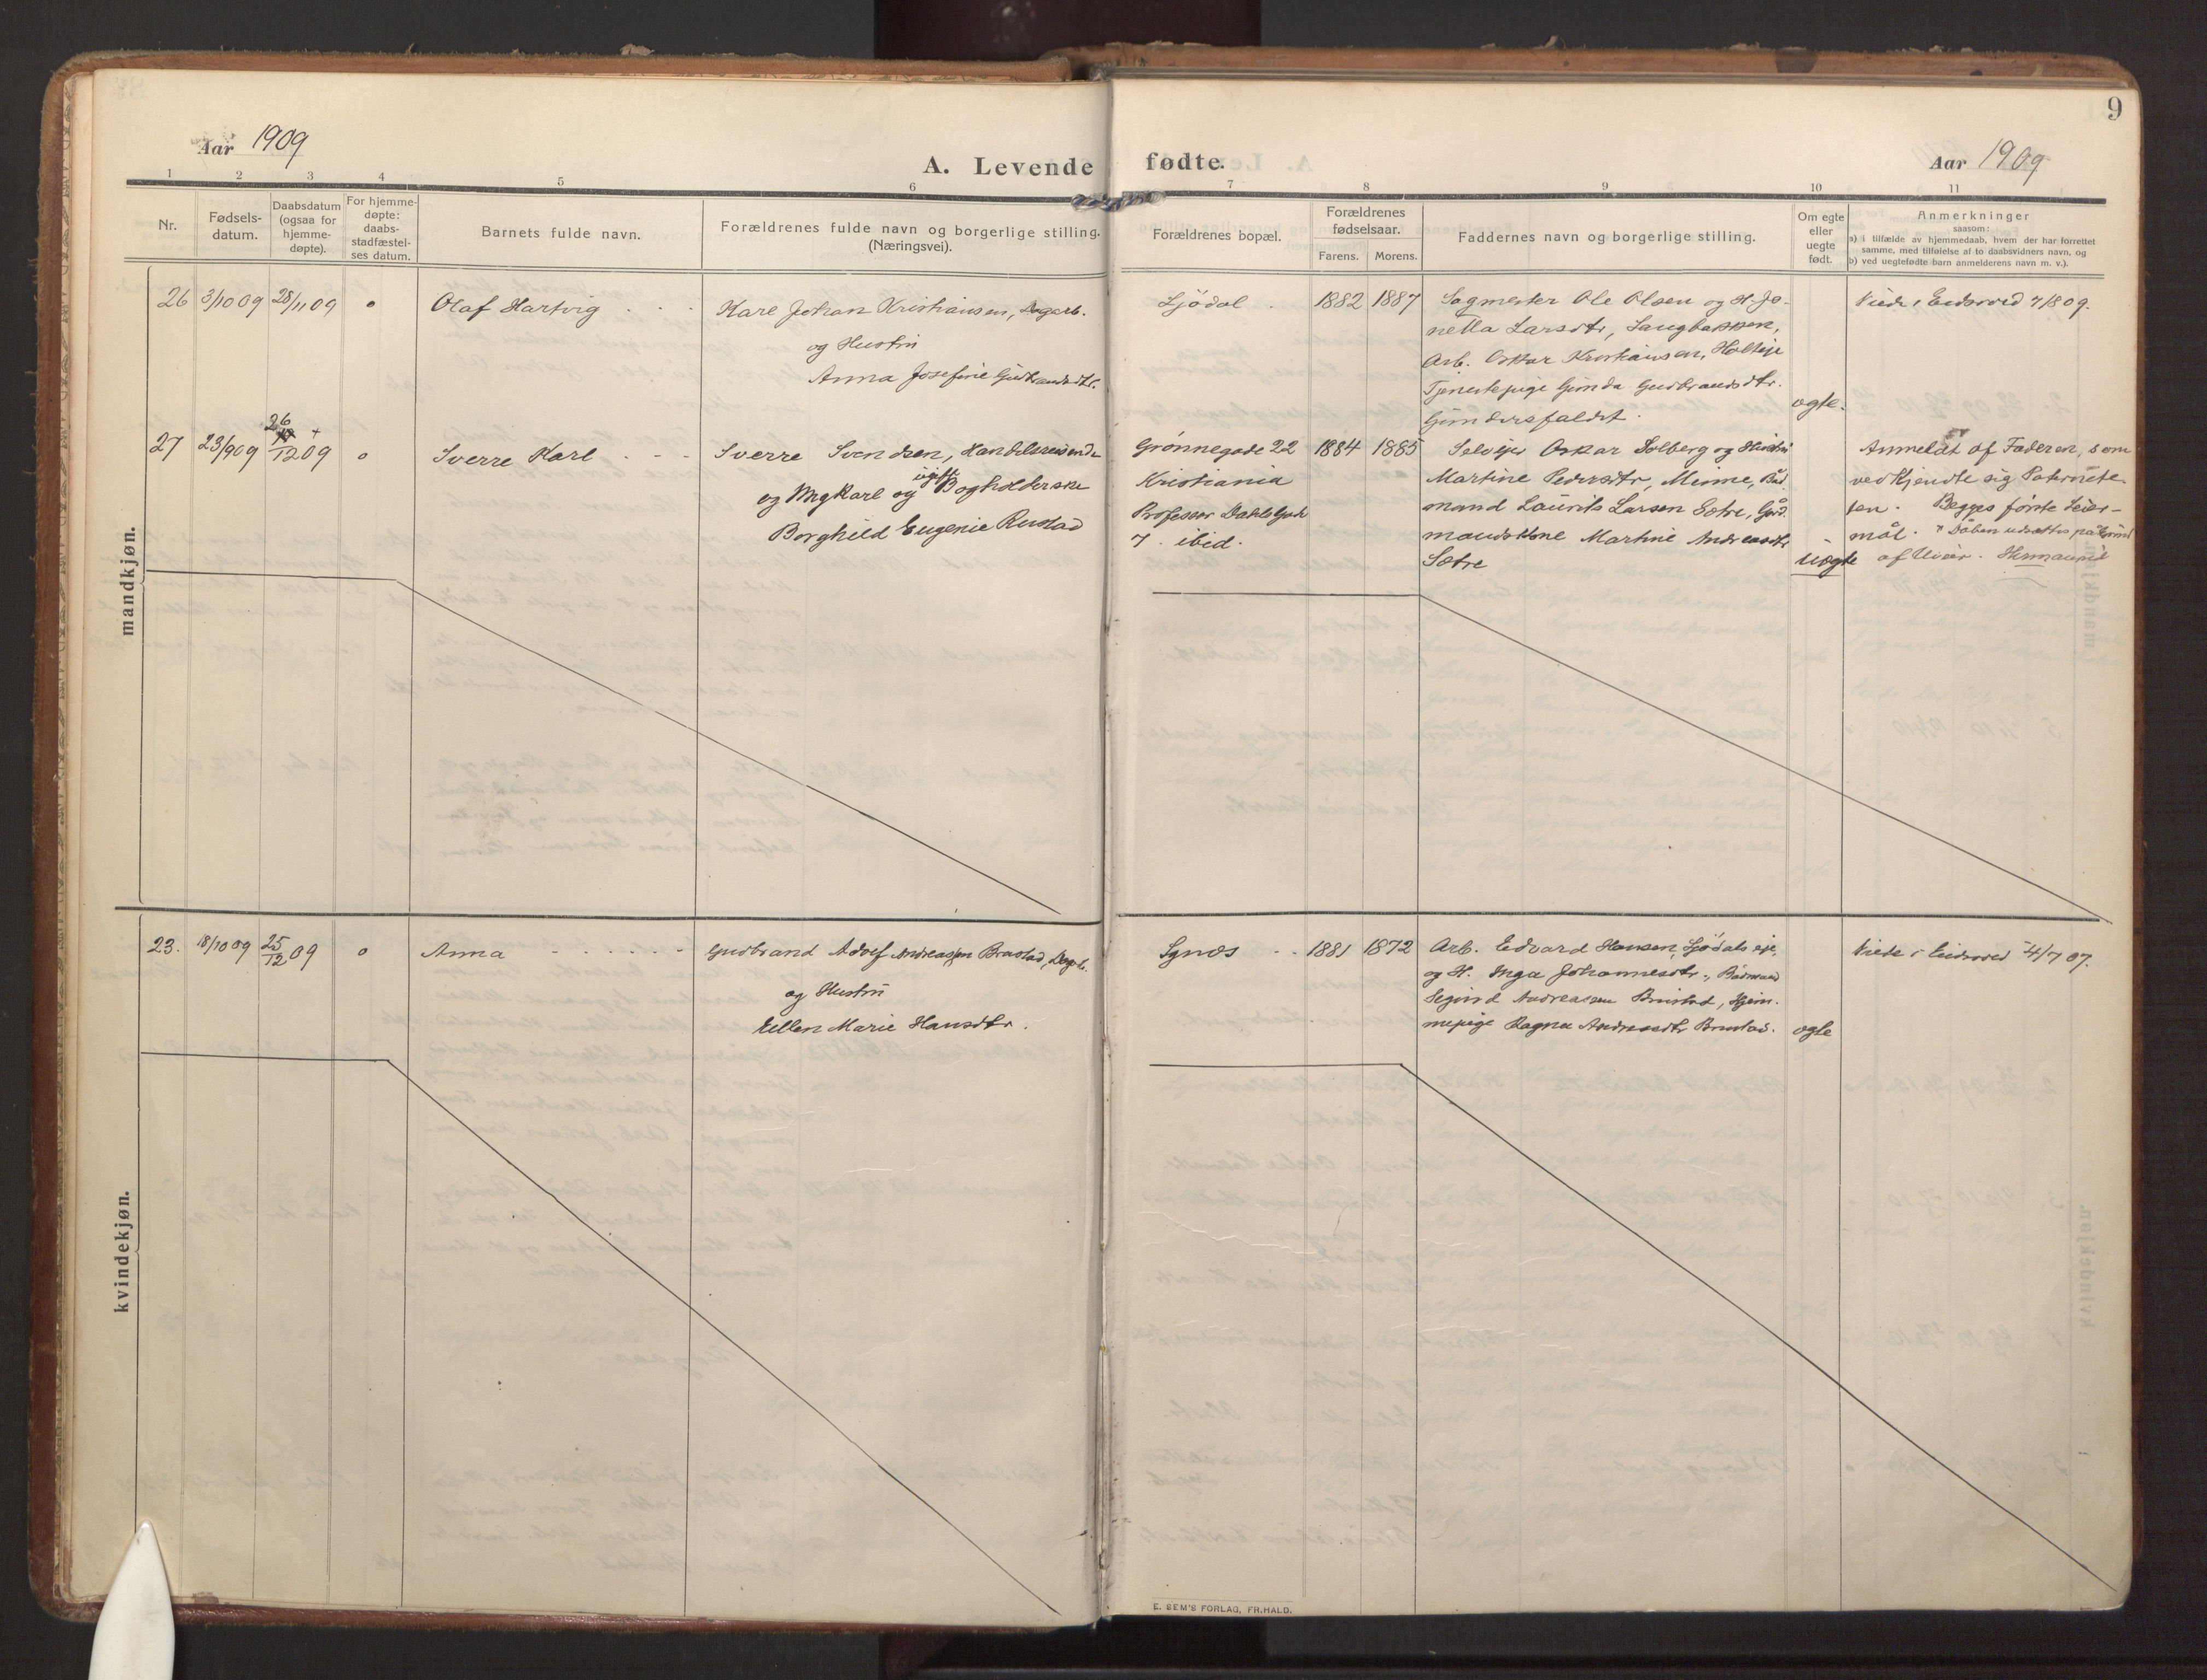 9
Aar 1909
A. Levende fødte.
Aar 1909
1 2 3 4 5 6 7 8 9 10 11
Nr.
Fødsels-
datum.
Daabsdatum
(ogsaa for
hjemme-
døpte).
For hjemme-
døpte:
daabs-
stadfæstel-
ses datum.
Barnets fulde navn.
Forældrenes fulde navn og borgerlige stilling.
(Næringsvei).
Forældrenes bopæl.
Forældrenes
fødselsaar.
Farens. Morens.
Faddernes navn og borgerlige stilling.
Om egte
eller
uegte
født.
Anmerkninger
saasom:
a) i tilfælde av hjemmedaab, hvem der har forrettet
samme, med tilføielse af to daabsvidners navn, og
b) ved uegtefødte barn anmelderens navn m. v.).
mandkjøn.
26 3/10 09 28/11 09 o
Olaf Hartvig
Karl Johan Kristiansen, Dagarb.
og Hustru
Anna Josefine Gudbrandsdtr.
Ljødal
1882 1887
Sagmester Ole Olsen og H. Jo-
netta Larsdtr, Saugbakken,
Arb. Oskar Kristiansen, Holteje
Tjenestepige Gunda Gudbrandsdtr.
Gundersfaldet.
egte.
Viede i Eidsvold 7/8 09.
27 23/9 09 26/12 09 + o
Sverre Karl
Sverre Svendsen, Handelsreisende
og Ungkarl og ugift Bogholderske
Borghild Eugenie Rustad
Grønnegade 22
Kristiania
Professor Dahls Gade
7. ibid.
1884 1885
Selvejer Oskar Solberg og Hustru
Martine Pedersdtr, Minne,
mand Laurits Larsen Sætre, Gård-
mandskone Martine Andreasdtr
Sætre
uægte
Anmeldt af Faderen, som
vedkjendte sig Paternite-
ten. Begges første Leier-
mål. + Dåben udsattes på Grund
af Uveir. Hermanrud
kvindekjøn.
23. 18/10 09 25/12 09 o
Anna
Gudbrand Adolf Andreassen Brustad, Dagarb.
og Hustru
Ellen Marie Hansdtr.
Sgnæs
1881 1872
Arb. Edvard Hansen, Ljødals eje,
og H. Inga Johannesdtr.,
Sigurd Andreassen Brustad, Hjem-
mepige Ragna Andreasdtr Brustad.
egte
Viede i Eidsvold 4/7 07.
E. SEM'S FORLAG, FR.HALD.